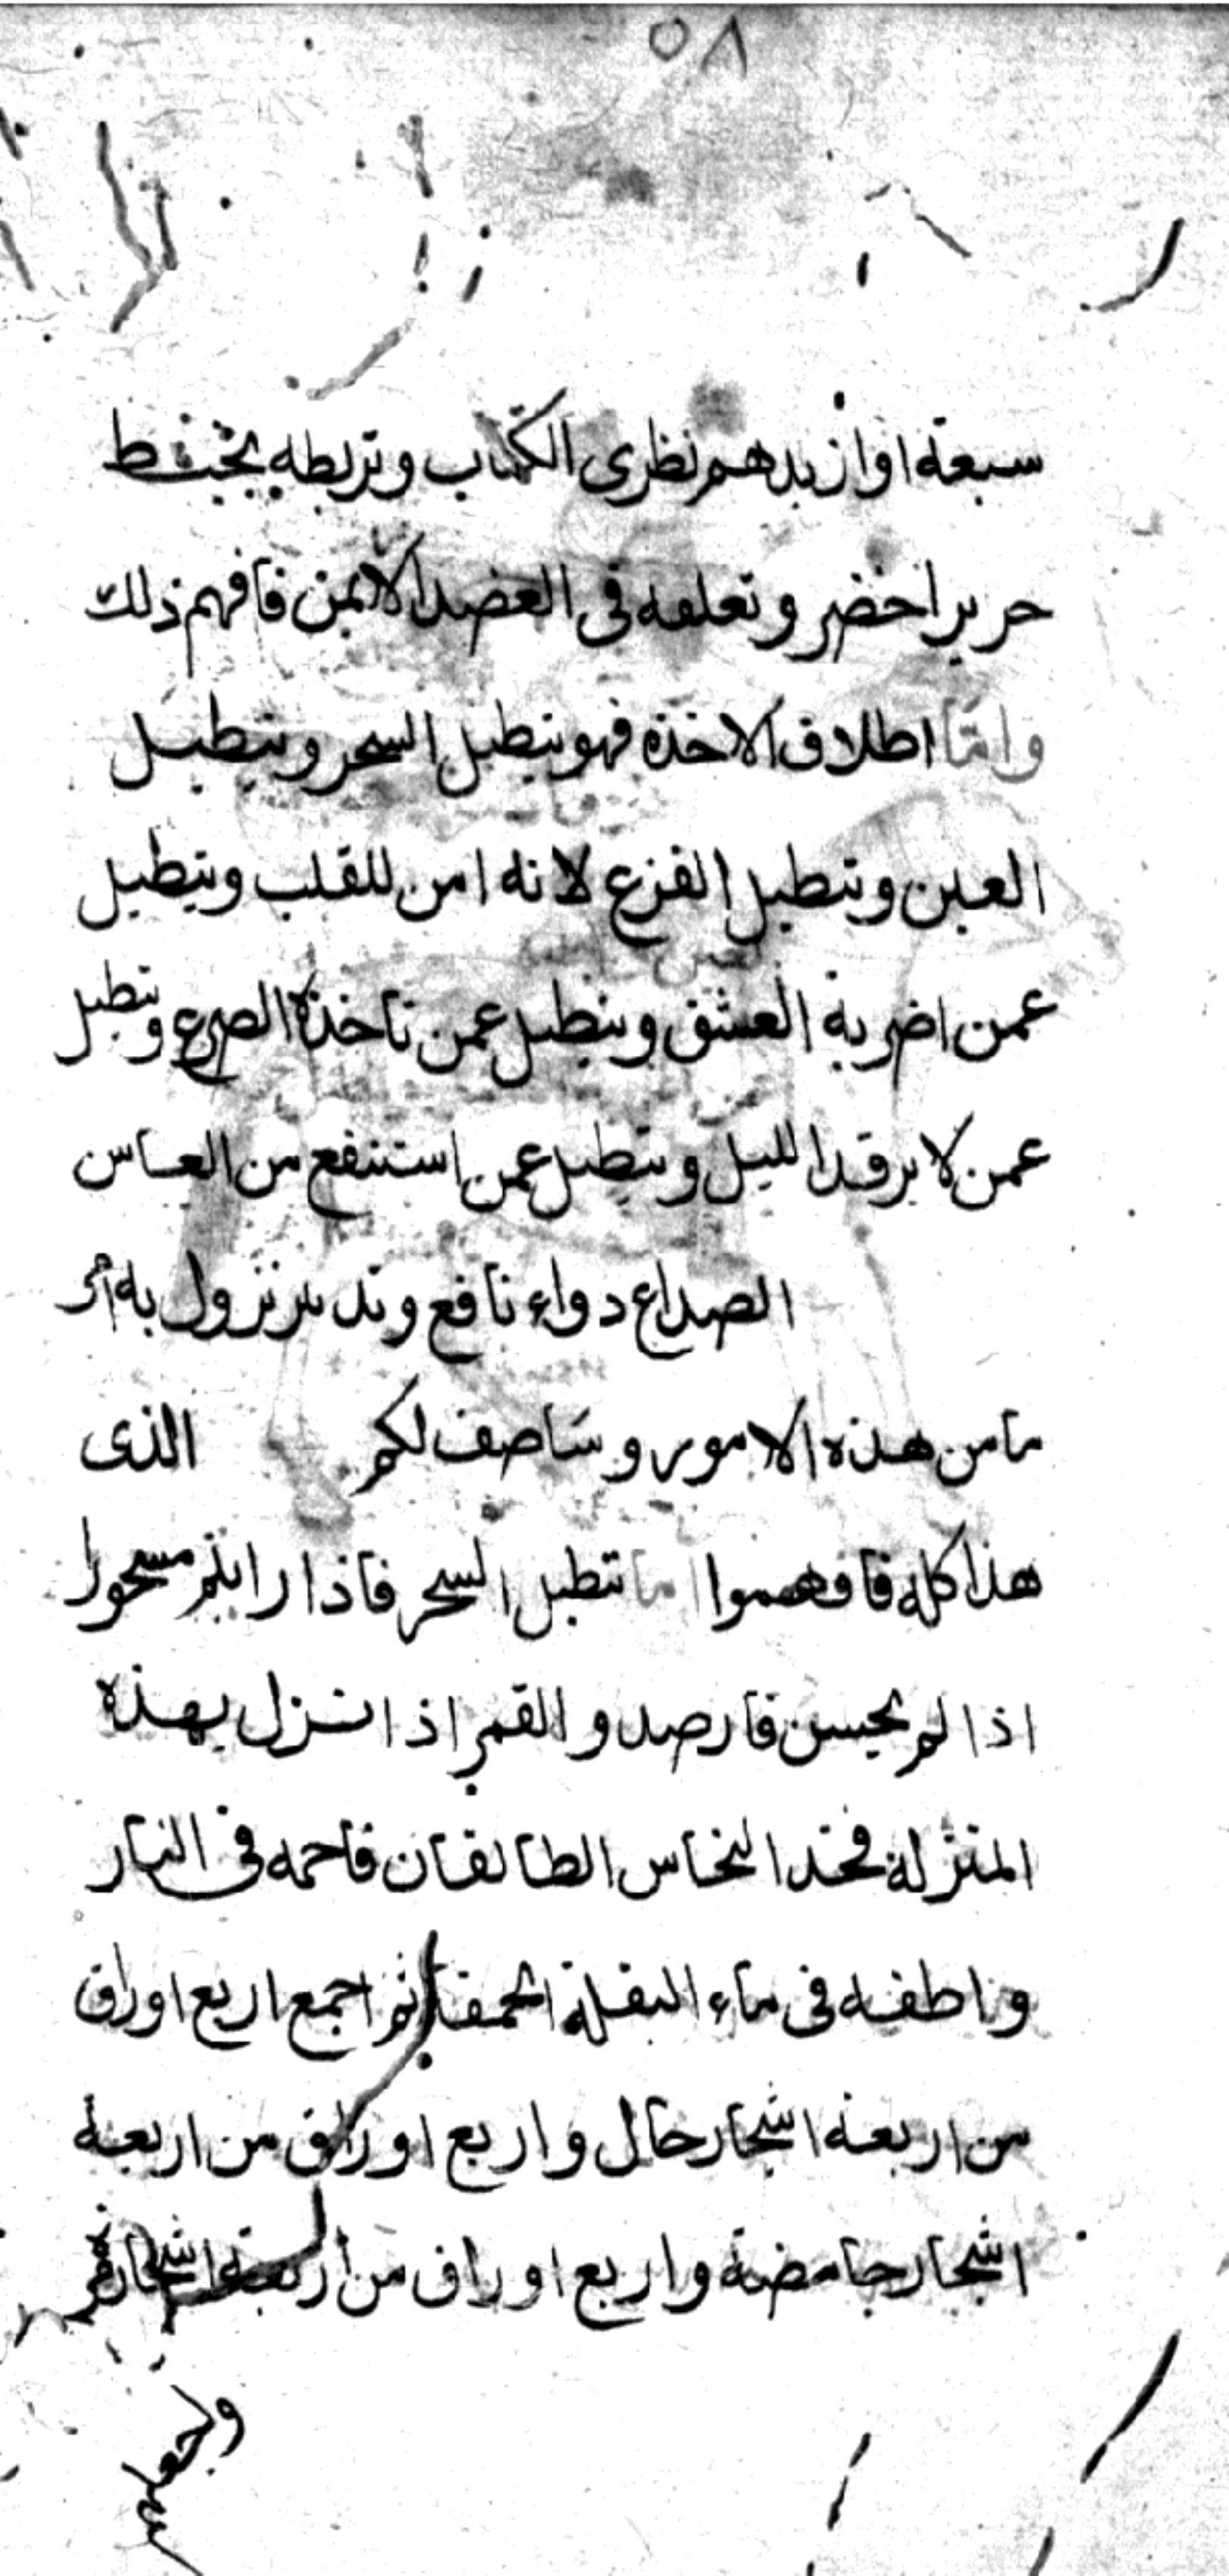 ٥٨
سبعة او ازيدهم نظرى الكتاب وتربطه بخيط
حرير اخضر وتعلقه فى العضد الايمن فافهم ذلك
واما اطلاق الاخذة فهو تبطيل السحر وتبطيل
العين وتبطيل الفزع لانه امن للقلب وتبطيل
عمن اضر به العشق وتبطيل عمن تاخذه الصرع وتبطيل
عمن لا يرقد الليل وتبطيل عمن استنفع من العاس
الصداع دواء نافع وتدبير تزول به
ما من هذه الامور وساصف لكم الذى
هذا كله فافهموا اما تبطيل السحر فاذا رايتم مسحورا
اذا لم يحبس فارصدو القمر اذا نزل بهذه
المنزلة فخد النحاس الطالقان فاحمه فى النار
واطفه فى ماء البقلة الحمقا ثم اجمع اربع اوراق
من اربعة اشجار حال واربع اوراق من اربعة
اشجار حامضة واربع اوراق من اربعة اشجار